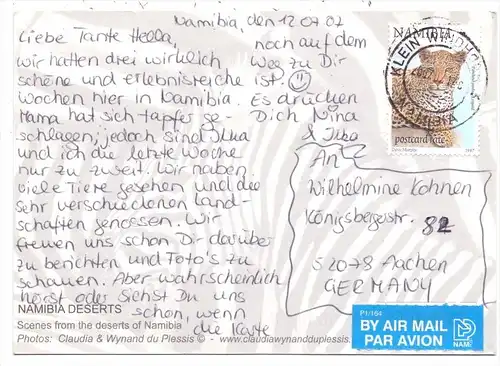 Namibia, den 12.07.02
Liebe Tante Hella,
wir hatten drei wirklich
schöne und erlebnisreiche
Wochen hier in Namibia.
Mama hat sich tapfer ge-
schlagen, jedoch sind Ilka
und ich die letzte Woche
nur zu zweit. Wir haben
viele Tiere gesehen und die
sehr verschiedenen Land-
schaften genossen. Wir
freuen uns schon Dir darüber
zu berichten und Foto's zu
schauen. Aber wahrscheinlich
hörst oder siehst Du uns
schon, wenn
die Karte
noch auf dem
Weg zu Dir
ist. ☺
Es drücken
Dich Nina
& Ilka
An
Wilhelmine Kohnen
Königsbergerstr. 82
52078 Aachen
GERMANY
NAMIBIA
KLEIN WINDHOEK
postcard rate
1997
NAMIBIA DESERTS
Scenes from the deserts of Namibia
Photos: Claudia & Wynand du Plessis © - www.claudiawynandduplessis.
P1/164
BY AIR MAIL
PAR AVION
NAM